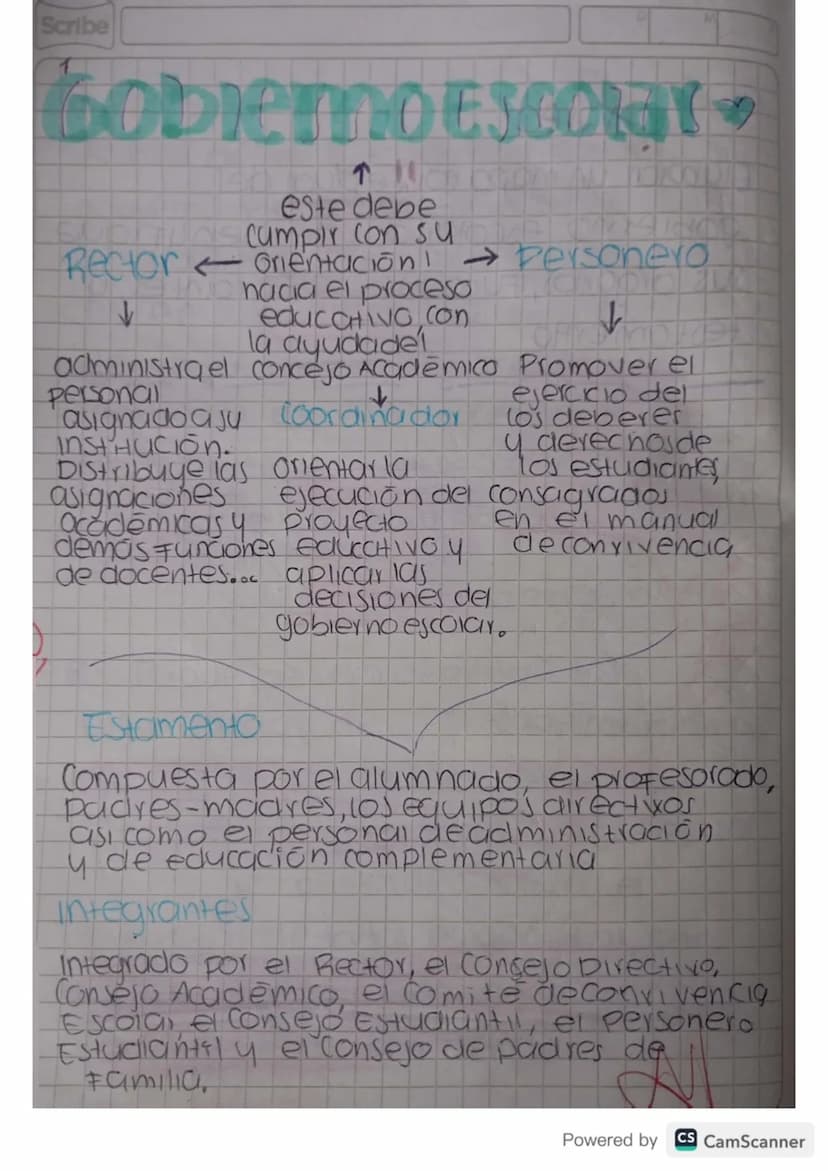 Scribe
Gobierno Escolar
este debe
cumplir con su
orientación
hacia el proceso
educativo, con
la ayuda del
concejo Académico
Rector
administra el
personal
asignado a su
institución.
Distribuye las
asignaciones
académicas y
demás funciones
de docentes...
Coordinador
orientar la
ejecución del
proyecto
educativo y
aplicar las
decisiones del
gobierno escolar.
Personero
Promover el
ejercicio del
los deberer
y derechos de
los estudiantes,
consagrados
en el manual
de convivencia
Estamento
Compuesta por el alumnado, el profesorado,
padres-madres, los equipos directivos
asi como el personal de administración
y de educación complementaria
Integrantes
Integrado por el Rector, el Consejo Directivo,
Consejo Académico, el comité de convivencia
Escolar, el Consejo Estudiantil, el personero
Estudiantil y el Consejo de padres de
Familia.
Powered by CS CamScanner